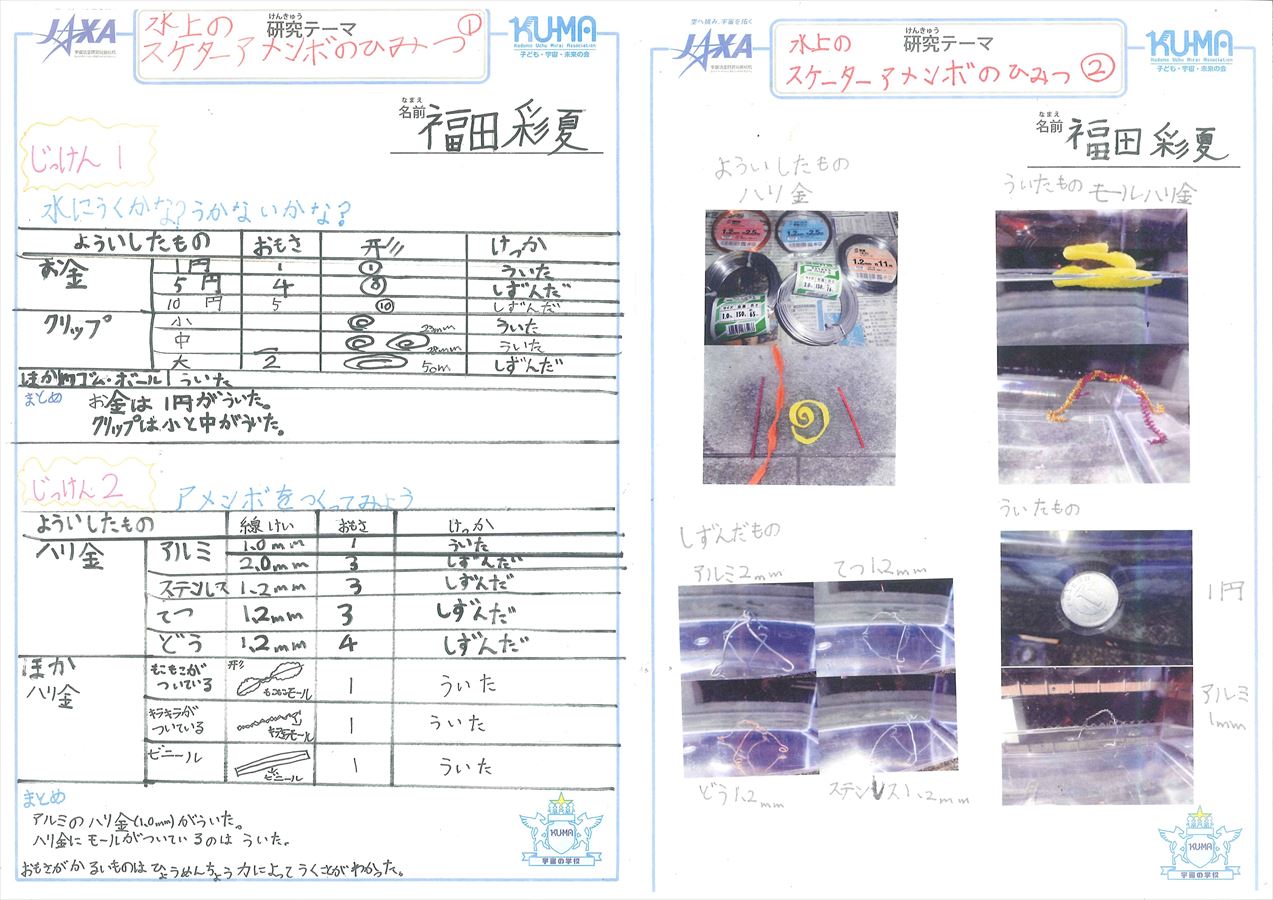 JAXA
宇宙航空研究開発機構
けんきゅう
研究テーマ
水上の
スケターアメンボのひみつ
①
KUMA
Kodomo Uchu Mirai Association
子ども・宇宙・未来の会
なまえ
名前
福田 彩夏
じっけん 1
水にうくかな?うかないかな?
よういしたもの おもさ 形 けっか
お金 1円 1 ① ういた
5 円 4 ⑤ しずんだ
10 円 5 ⑩ しずんだ
クリップ 小 23mm ういた
中 28mm ういた
大 2 5cm しずんだ
ゴム・ボール ういた
まとめ お金は 1円がういた。
クリップは小と中がういた。
じっけん 2
アメンボをつくってみよう
よういしたもの 線けい おもさ けっか
ハリ金 アルミ 1.0mm 1 ういた
2.0mm 3 しずんだ
ステンレス 1.2mm 3 しずんだ
てつ 1.2mm 3 しずんだ
どう 1.2mm 4 しずんだ
ほか
ハリ金
もこもこが
ついている
形
もこもこモール
1 ういた
キラキラが
ついている
キラキラモール
1 ういた
ビニール
ビニール
1 ういた
まとめ
アルミのハリ金(1.0mm)がういた。
ハリ金にモールがついているのは ういた。
おもさがかるいものは ひょうめんちょう力によってうくことがわかった。
KUMA
宇宙の学校
空へ挑み、宇宙を拓く
JAXA
宇宙航空研究開発機構
けんきゅう
研究テーマ
水上の
スケーターアメンボのひみつ ②
KUMA
Kodomo Uchu Mirai Association
子ども・宇宙・未来の会
なまえ
名前
福田 彩夏
よういしたもの
ハリ金
ういたもの モールハリ金
しずんだもの
アルミ2mm
てつ1.2mm
どう1.2mm
ステンレス1.2mm
ういたもの
1円
アルミ
1mm
KUMA
宇宙の学校